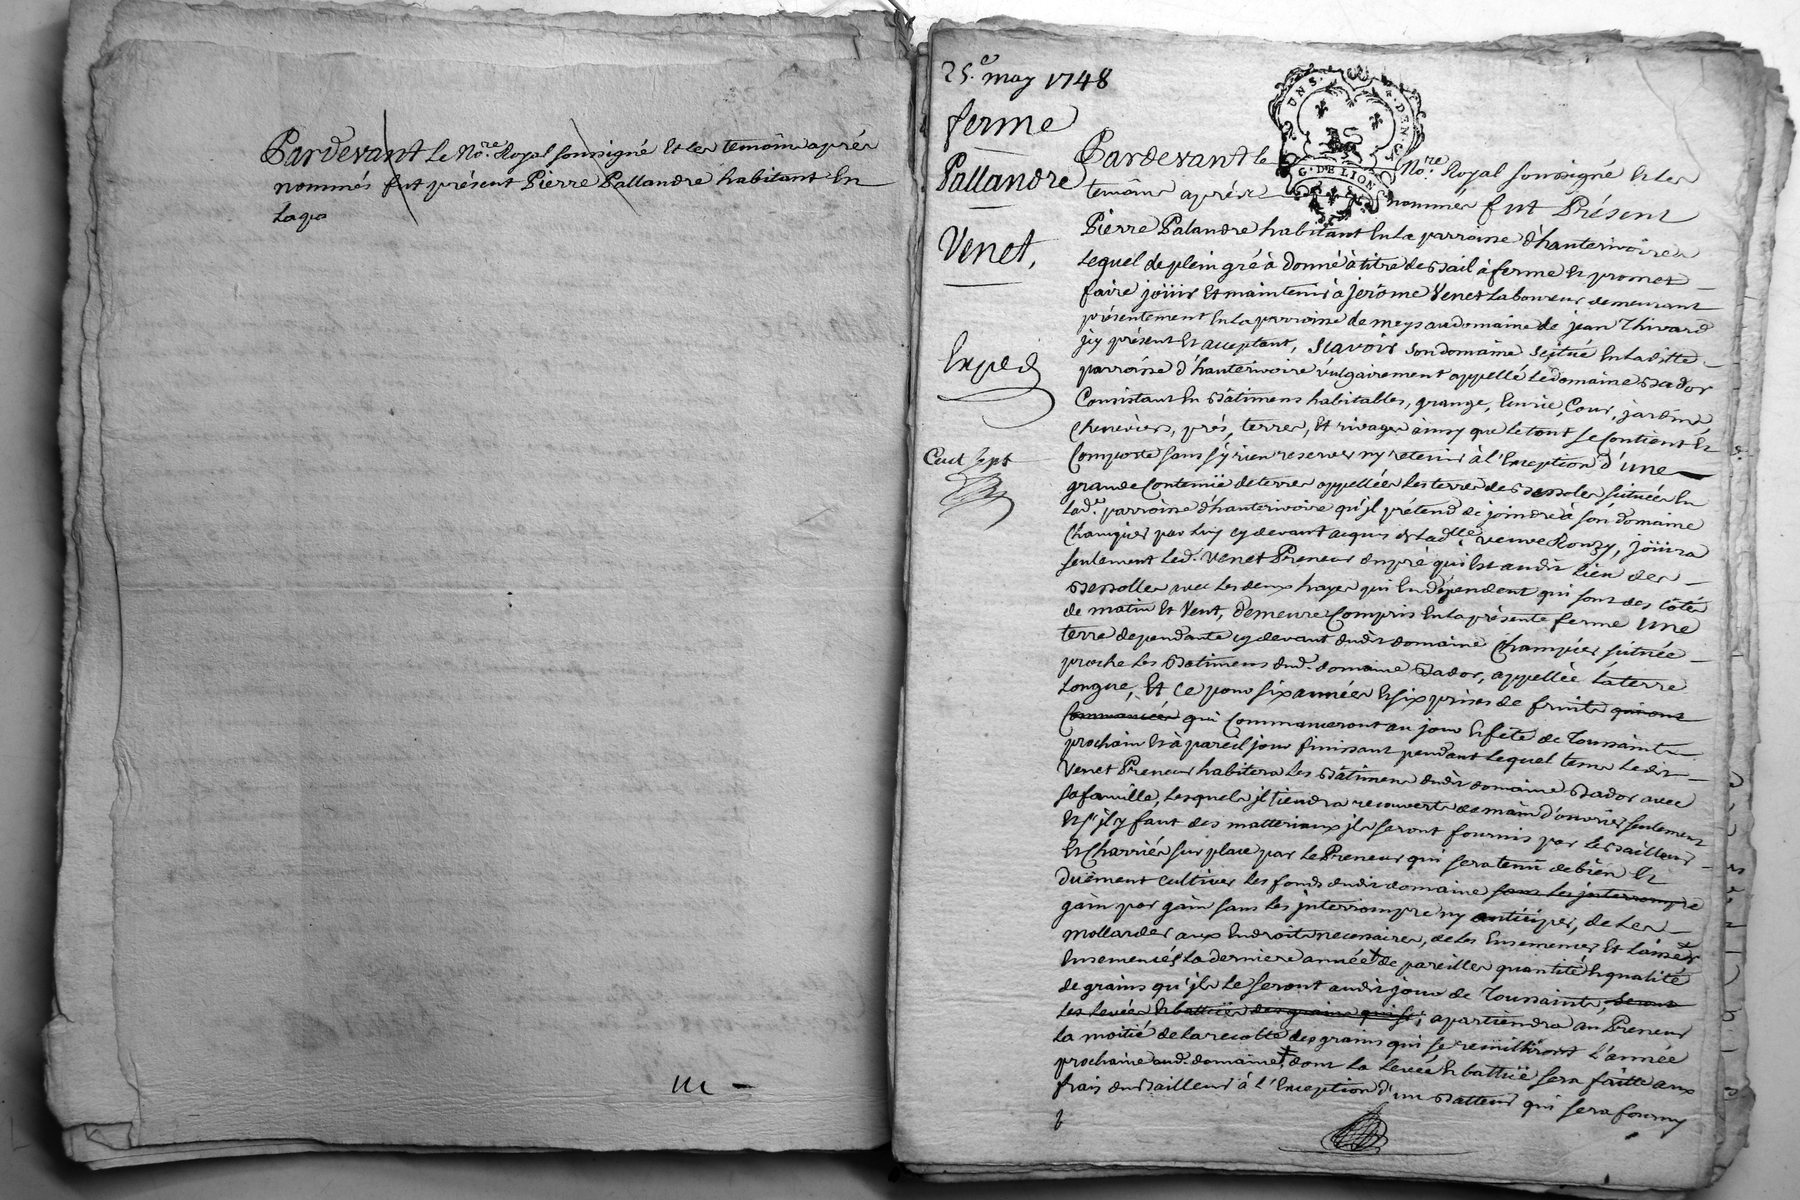 Pardevant le No.re Royal soussigné et les temoins après
nommés fut présent Pierre Pallandre habitant En
la pa
m -
25.e may 1748
ferme
Pallandre
Venet,
Exped
UNS. DEN
G. DE LION
Pardevant le No.re Royal soussigné Et les
temoins après nommés fut Présent
Pierre Palandre habitant En la parroisse d'hauterivoires
Lequel de plein gré à donné à titre de Bail à ferme Et promet
faire joüir Et maintenir à Jerôme Venet Laboureur demeurant
présentement En la parroisse de meys au domaine de jean Thivard
jcy présent Et acceptant, Scavoir son domaine scitué En laditte
parroisse d'hauterivoire vulgairement appellé Le domaine Bador
Consistant En Bâtimens habitables, grange, Ecurie, Cour, jardin,
Cheneviers, prés, terres, Et rivages ainsy que le tout se Contient Et
Comporte sans s'y rien reserver ny retenir à l'Exception d'une
grande Contenüe de terres appellées Les terres des Bessoles, situées En
lad.e parroisse d'hauterivoire qu'il prétend de joindre à son domaine
Champier par luy cy devant acquis de lad.lle veuve Rouzy, joüira
seulement led. Venet Preneur du pré qui Est audit lieu des
Bessolles avec les deux hayes qui En dépendent qui sont des côtés
de matin Et Vent, demeure Compris En la présente ferme une
terre dependante cy devant dudit domaine Champier située
proche les Batimens dud. domaine Bador, appellée la terre
Longue, Et Ce pour six années Et six prises de fruits qui ont
Commancées qui Commanceront au jour Et fete de Toussaints
prochain Et à pareil jour finissant pendant lequel tems ledit
Venet Preneur habitera les Bâtimens dudit domaine Bador avec
sa famille, lesquels il tiendra recouverts de main d'ouvrier seulement
Et s'il y faut des matteriaux ils seront fournis par le Bailleur
Et Charriés sur place par le Preneur qui sera tenu de bien Et
Duëment cultiver les fonds dudit domaine sans les jnterrompre
gain par gain sans les jnterrompre ny anticiper, de les
mollarder aux Endroits necessaires, de les Ensemencer Et laisser
Ensemencés la derniere année de pareilles quantité Et qualité
de grains qu'ils le seront audit jour de Toussaints,
les levées Et battües des grains apartiendra au Preneur
la moitié de la recolte des grains qui se reciiilliront l'année
prochaine aud. domaine, dont la levée Et battüe sera faitte aux
frais du Bailleur à l'Exception d'un Batteur qui sera fourny